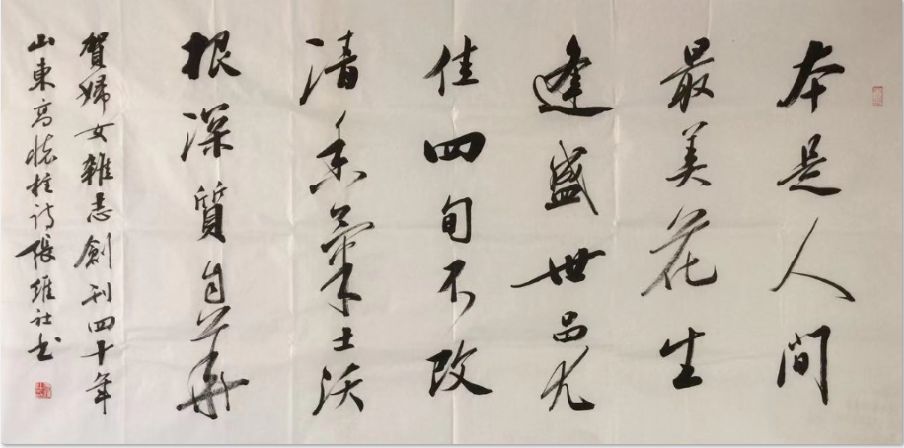 本是人间
最美花生
逢盛世品尤
佳四旬不改
清香氣土沃
根深質自華
賀婦女雜志創刊四十年
山東高怀柱诗張維社书